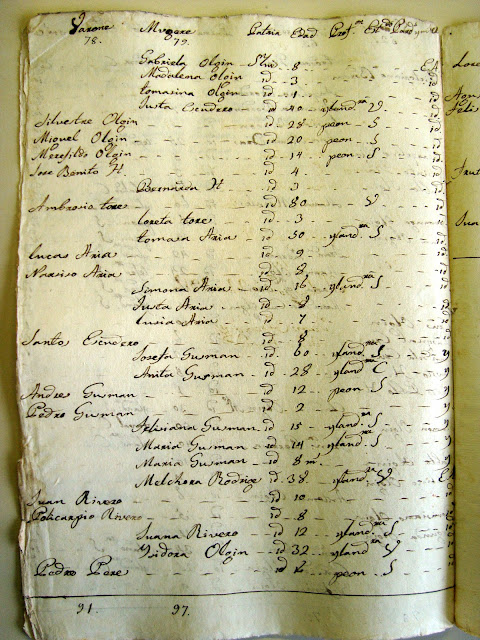 Varone Mugere Patria Edad Prof.on Est.do
78. 79.
Gabriela Olgin 8
Madalena Olgin id 3
tomasina Olgin id 1
Justa Esindero id 40 yland.ra V
Silvestre Olgin id 28 peon S
Miguel Olgin id 20 peon S
Merejildo Olgin id 14 peon S
Jose Benito H id 4
Bernarda H id 3
Ambrosio tore id 80 V
loreta tore id 3
tomasa Aria id 50 yland.ra S
lucas Aria id 9
Narciso Aria id 8
Semona Aria id 16 yland.ra S
Justa Aria id 8
lusia Aria id 7
Santos Esindero id 8
Josefa Gusman id 60 yland.ra S
Anita Gusman id 28 yland.ra C
Andres Gusman id 12 peon S
Pedro Gusman id 2
Felisiana Gusman id 15 yland.ra S
Maria Gusman id 14 yland.ra S
Maria Gusman id 8 m.s
Melchora Rodrige id 38 yland.ra V
Juan Rivero id 10
Policarpio Rivero id 8
Juana Rivero id 12 yland.ra S
Isidora Olgin id 32 yland.ra V
Pedro Pere id peon S
91. 97.